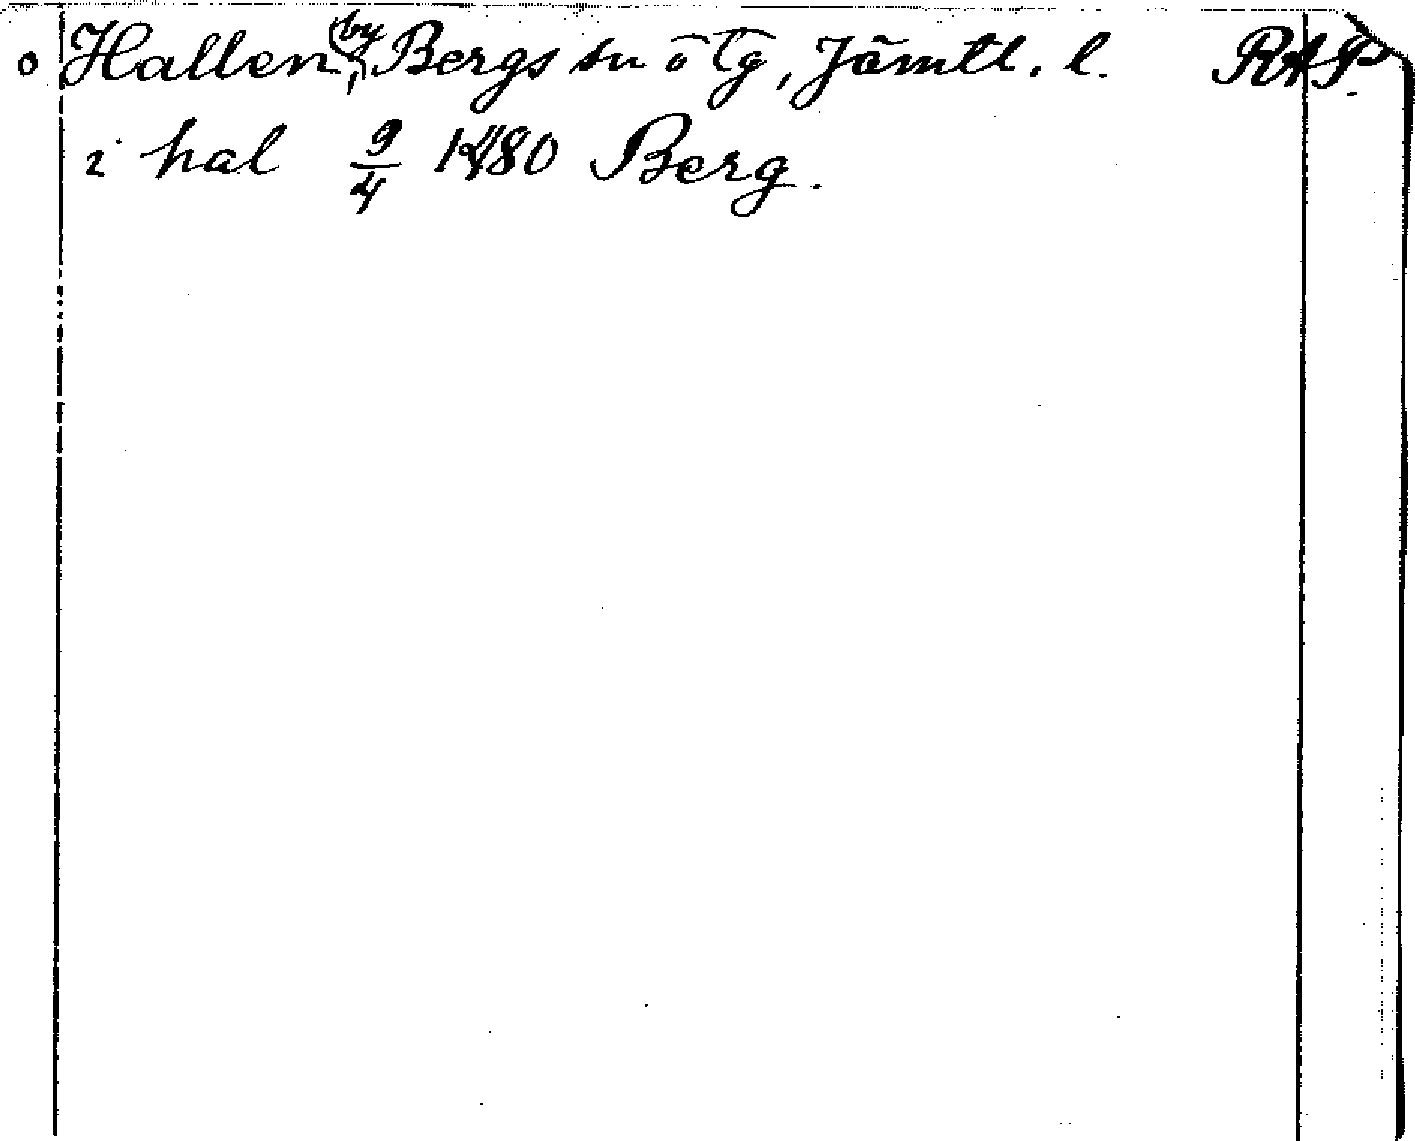 o Hallen, by, Bergs sn o tg, Jämtl. l. RAP.
i hal 9/4 1480 Berg.